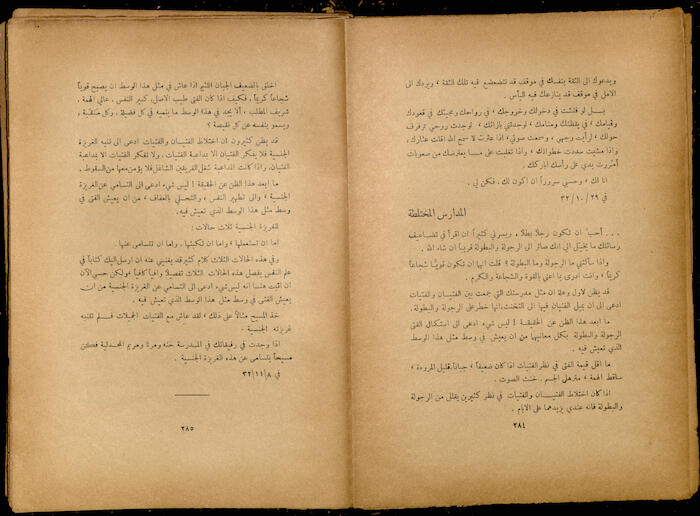 ويدعوك الى الثقة بنفسك في موقف قد تتضعضع فيه تلك الثقة ، ويردك الى
الامل في موقف قد ينازعك فيه اليأس .
بــل لو فتشت في دخولك وخروجك ، في رواحك ومجيئك في قعودك
وقيامك ، في يقظتك ومنامك ، لوجدتني بازائك ، لوجدت روحي ترفرف
حولك ، لرأيت وجهي ، وسمعت صوتي ، اذا عثرت لا سمح الله اقلت عثارك،
واذا مشيت سددت خطواتك ، واذا تغلبت على مــا يعترضك من صعوبات
امررت يدي على رأسك اباركك .
انا لك ، وحسبي سروراً ان اكون لك ، فكن لي .
في ٢٩/ ١٠/ ٣٢
المدارس المختلطة
. . . أحب ان تكون رجلا بطلا . ويسرني كثيراً ان اقرأ في تضاعيف
رسائلك ما يخيل الي انك صائر الى الرجولة والبطولة قريباً ان شاء الله .
واذا سألتني ما الرجولة وما البطولة ؟ قلت انهما ان تكون قويّاً شجاعاً
كريماً ، وانت ادرى بما اعني بالقوة والشجاعة والكرم .
قد يظن لاول وهلة ان مثل مدرستك التي جمعت بين الفتيــان والفتيات
ادعى الى ان يميل الفتيان فيها الى التخنث، انها خطر على الرجولة والبطولة.
ما ابعد هذا الظن عن الحقيقــة ! ليس شيء ادعى الى استكمال الفتى
الرجولة والبطولة بكل معانيهما من ان يعيش في وسط مثل هذا الوسط
الذي تعيش فيه .
ما اقل قيمة الفتى في نظر الفتيات اذا كان ضعيفاً ، جباناً، قليل المروءة ،
ساقط الهمة ، مترهل الجسم . خنث الصوت .
اذا كان اختلاط الفتيــان والفتيات في نظر كثيرين يقلل من الرجولة
والبطولة فانه عندي يزيدهما على الايام .
٢٨٤
اخلق بالضعيف الجبان اللئيم اذا عاش في مثل هذا الوسط ان يصبح قوياً
شجاعاً كريماً . فكيف اذا كان الفتى طيب الاصل، كبير النفس، عالي الهمة .
شريف المطلب ، ألا يجد في هذا الوسط ما ينميه في كل فضيلة ، وكل منقبة ،
ويسمو بنفسه عن كل نقيصة ؟
قد يظن كثيرون ان اختلاط الفتيــان والفتيات ادعى الى تنبه الغريزة
الجنسية فلا يفكر الفتيان الا بمداعبة الفتيات . ولا تفكر الفتيات الا بمداعبة
الفتيان، واذا كانت المداعبة شغل الفريقين الشاغل فلا يؤمن معها من السقوط .
ما ابعد هذا الظن عن الحقيقة ! ليس شيء ادعى الى التسامي عن الغريزة
الجنسية ، والى تطهير النفس ، والتحلي بالعفاف ، من ان يعيش الفتى في
وسط مثل هذا الوسط الذي تعيش فيه .
للغريزة الجنسية ثلاث حالات :
اما ان تستعملها ، واما ان تكبتها ، واما ان تتسامى عنها .
وفي هذه الحالات الثلاث كلام كثير قد يغنيني عنه ان ارسل اليك كتاباً في
علم النفس يفصل هذه الحالات الثلاث تفصيلا وافياً كافياً ، ولكن حسبي الآن
ان اثبت هنــا انه ليس شيء ادعى الى التسامي عن الغريزة الجنسية من ان
يعيش الفتى في وسط مثل هذا الوسط الذي تعيش فيه .
خذ المسيح مثالاً على ذلك ، لقد عاش مع الفتيات الجميلات فــلم تتنبه
غريزته الجنسية .
اذا وجدت في رفيقاتك في المــدرسة حنه ومرتا ومريم المجدلية فكــن
مسيحاً يتسامى عن هذه الغريزة الجنسية .
في ٨ /١١ /٣٢
٢٨٥